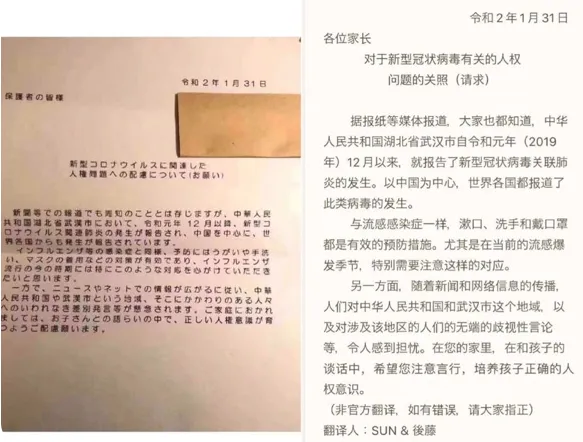 令和２年１月３１日
保護者の皆様
新型コロナウイルスに関連した
人権問題への配慮について(お願い)
新聞等での報道でも周知のこととは存じますが、中華人民
共和国湖北省武漢市において、令和元年12月以降、新型コ
ロナウイルス関連肺炎の発生が報告され、中国を中心に、世
界各国からも発生が報告されています。
インフルエンザ等の感染症と同様、予防にはうがいや手洗
い、マスクの着用などの対策が有効であり、インフルエンザ
流行の今の時期には特にこのような対応を心がけていただき
たいと思います。
一方で、ニュースやネットでの情報が広がるに従い、中華
人民共和国や武漢市という地域、そこにかかわりのある人々
へのいわれなき差別発言等が懸念されます。ご家庭におかれ
ましては、お子さんとの語らいの中で、正しい人権意識が育
つようご配慮願います。
令和２年１月31日
各位家长
对于新型冠状病毒有关的人权
问题的关照（请求）
据报纸等媒体报道，大家也都知道，中华
人民共和国湖北省武汉市自令和元年（2019
年）12月以来，就报告了新型冠状病毒关联肺
炎的发生。以中国为中心，世界各国都报道了
此类病毒的发生。
与流感感染症一样，漱口、洗手和戴口罩
都是有效的预防措施。尤其是在当前的流感爆
发季节，特别需要注意这样的对应。
另一方面，随着新闻和网络信息的传播，
人们对中华人民共和国和武汉市这个地域，以
及对涉及该地区的人们的无端的歧视性言论
等，令人感到担忧。在您的家里，在和孩子的
谈话中，希望您注意言行，培养孩子正确的人
权意识。
（非官方翻译，如有错误，请大家指正）
翻译人：SUN & 後藤